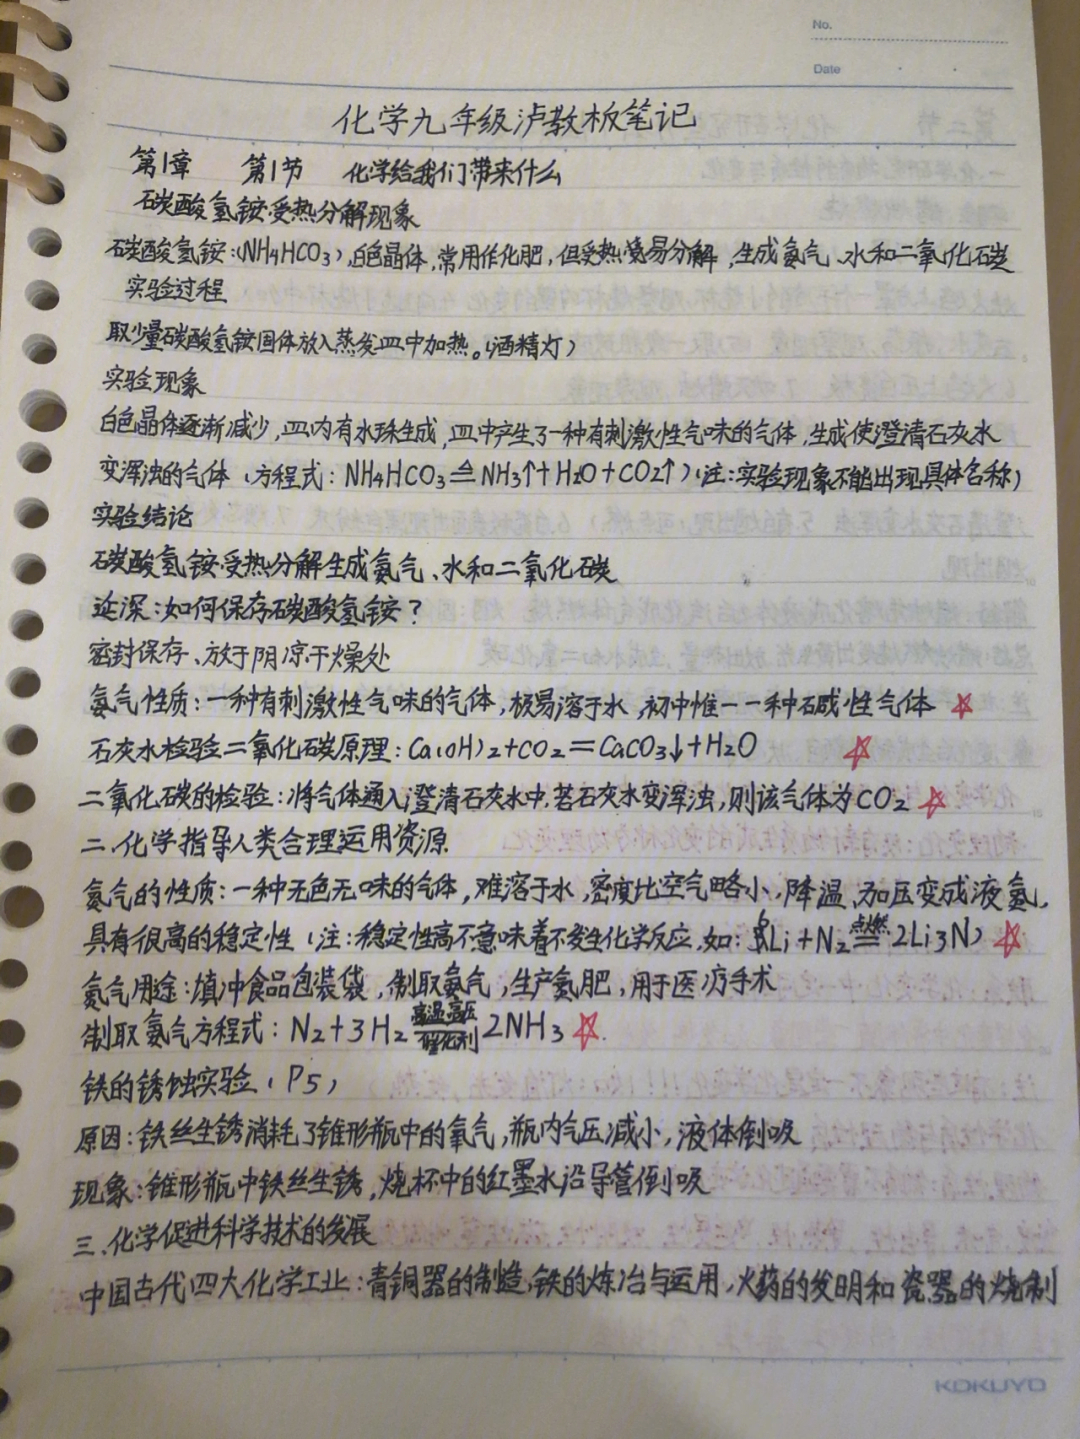 No.
Date
化学九年级沪教板笔记
第1章 第1节 化学给我们带来什么
碳酸氢铵受热分解现象
碳酸氢铵:(NH4HCO3),白色晶体,常用作化肥,但受热易分解,生成氨气、水和二氧化碳
实验过程
取少量碳酸氢铵固体放入蒸发皿中加热。(酒精灯)
实验现象
白色晶体逐渐减少,皿内有水珠生成,皿中产生了一种有刺激性气味的气体,生成使澄清石灰水
变浑浊的气体(方程式:NH4HCO3≙NH3↑+H2O+CO2↑)(注:实验现象不能出现具体名称)
实验结论
碳酸氢铵受热分解生成氨气、水和二氧化碳
延深:如何保存碳酸氢铵?
密封保存、放于阴凉干燥处
氨气性质:一种有刺激性气味的气体,极易溶于水,初中惟一一种碱性气体 ☆
石灰水检验二氧化碳原理:Ca(OH)2+CO2=CaCO3↓+H2O ☆
二氧化碳的检验:将气体通入澄清石灰水中,若石灰水变浑浊,则该气体为CO2 ☆
二、化学指导人类合理运用资源
氮气的性质:一种无色无味的气体,难溶于水,密度比空气略小,降温、加压变成液氮,
具有很高的稳定性(注:稳定性高不意味着不发生化学反应,如:6Li+N2点燃=2Li3N)☆
氮气用途:填冲食品包装袋,制取氨气,生产氮肥,用于医疗手术
制取氨气方程式:N2+3H2 高温高压 催化剂 2NH3 ☆
铁的锈蚀实验(P5)
原因:铁丝生锈消耗了锥形瓶中的氧气,瓶内气压减小,液体倒吸
现象:锥形瓶中铁丝生锈,烧杯中的红墨水沿导管倒吸
三、化学促进科学技术的发展
中国古代四大化学工业:青铜器的制造,铁的炼冶与运用,火药的发明和瓷器的烧制
KOKUYO